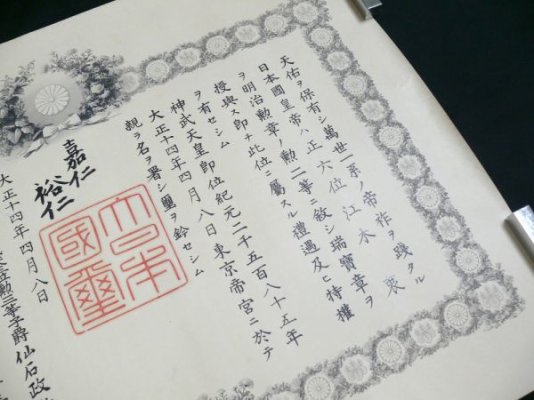 天佑ヲ保有シ萬世一系ノ帝祚ヲ踐タル
日本國皇帝ハ正六位江木衷
ヲ明治勲章ノ勲二等ニ敘シ瑞寶章ヲ
授與ス即チ此位ニ屬スル禮遇及ヒ特權
ヲ有セシム
神武天皇即位紀元二千五百八十五年
大正十四年四月八日東京帝宮ニ於テ
親ラ名ヲ署シ璽ヲ鈐セシム
嘉仁
裕仁
大日本
國璽
大正十四年四月八日
子爵仙石政